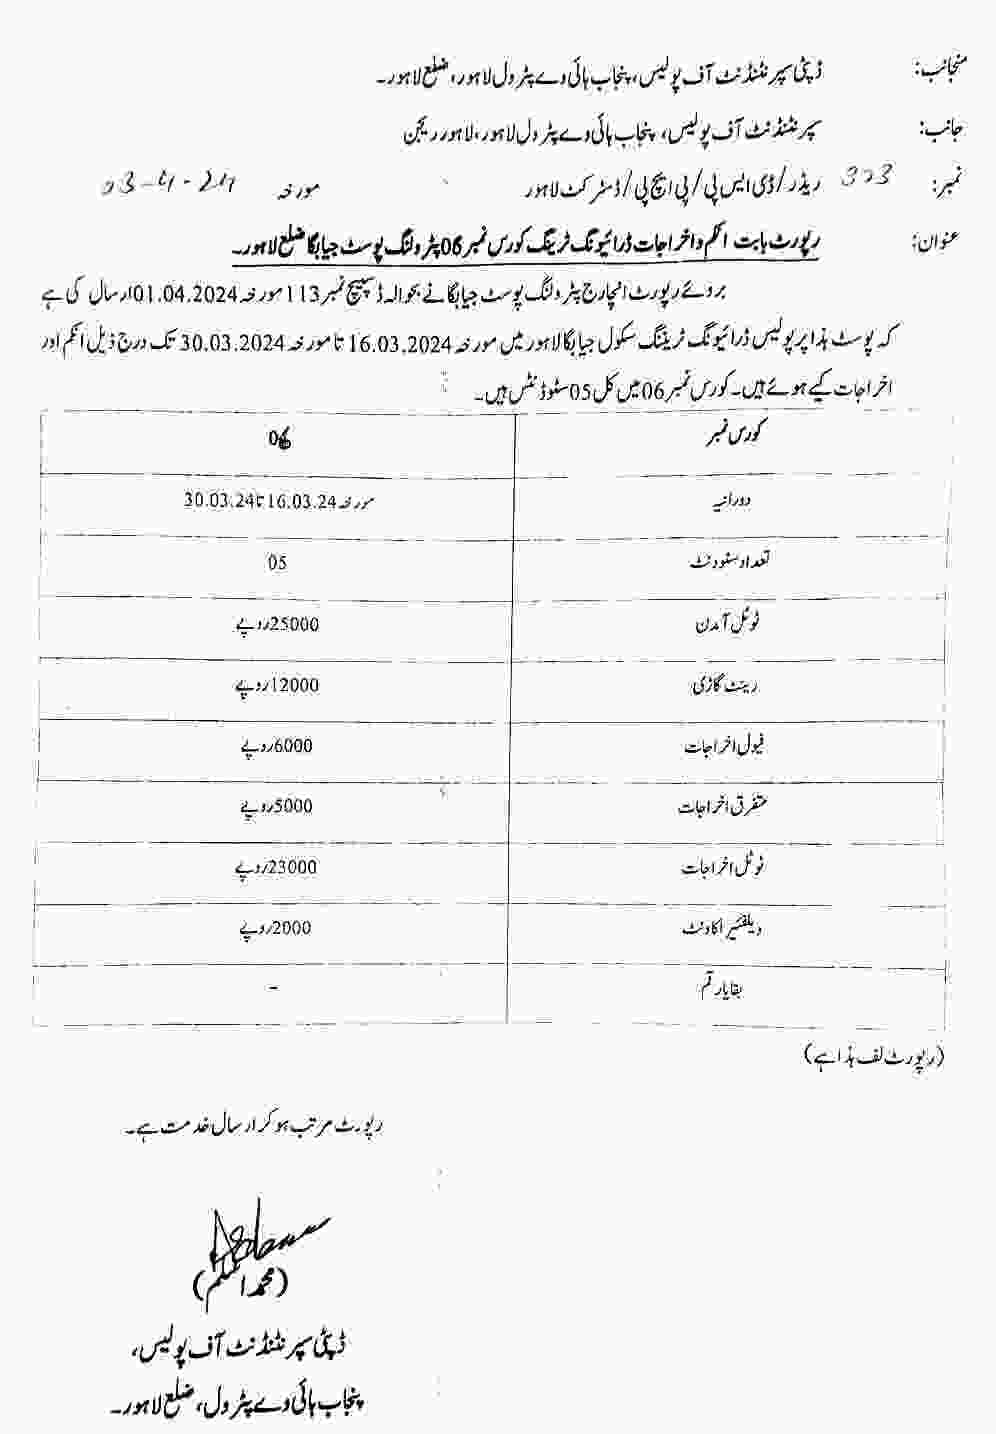 منجانب: ڈپٹی سپرنٹنڈنٹ آف پولیس، پنجاب ہائی وے پٹرول لاہور، ضلع لاہور۔
جانب: سپرنٹنڈنٹ آف پولیس، پنجاب ہائی وے پٹرول لاہور، لاہور ریجن
نمبر: 303 ریڈر/ڈی ایس پی/پی ایچ پی/ڈسٹرکٹ لاہور مورخہ 03-4-24
عنوان: رپورٹ بابت انکم و اخراجات ڈرائیونگ ٹریننگ کورس نمبر 06 پٹرولنگ پوسٹ جیابگا ضلع لاہور۔
بروئے رپورٹ انچارج پٹرولنگ پوسٹ جیابگا نے بحوالہ ڈسپیچ نمبر 113 مورخہ 01.04.2024 ارسال کی ہے
کہ پوسٹ ہذا پر پولیس ڈرائیونگ ٹریننگ سکول جیابگا لاہور میں مورخہ 16.03.2024 تا مورخہ 30.03.2024 تک درج ذیل انکم اور
اخراجات کیے ہوئے ہیں۔ کورس نمبر 06 میں کل 05 سٹوڈنٹس ہیں۔
کورس نمبر 06
دورانیہ مورخہ 16.03.24 تا 30.03.24
تعداد سٹوڈنٹ 05
ٹوٹل آمدن 25000/روپے
رینٹ گاڑی 12000/روپے
فیول اخراجات 6000/روپے
متفرق اخراجات 5000/روپے
ٹوٹل اخراجات 23000/روپے
ویلفئیر اکاونٹ 2000/روپے
بقایا رقم -
(رپورٹ لف ہذا ہے)
رپورٹ مرتب ہو کر ارسال خدمت ہے۔
(محمد اسلم)
ڈپٹی سپرنٹنڈنٹ آف پولیس،
پنجاب ہائی وے پٹرول، ضلع لاہور۔